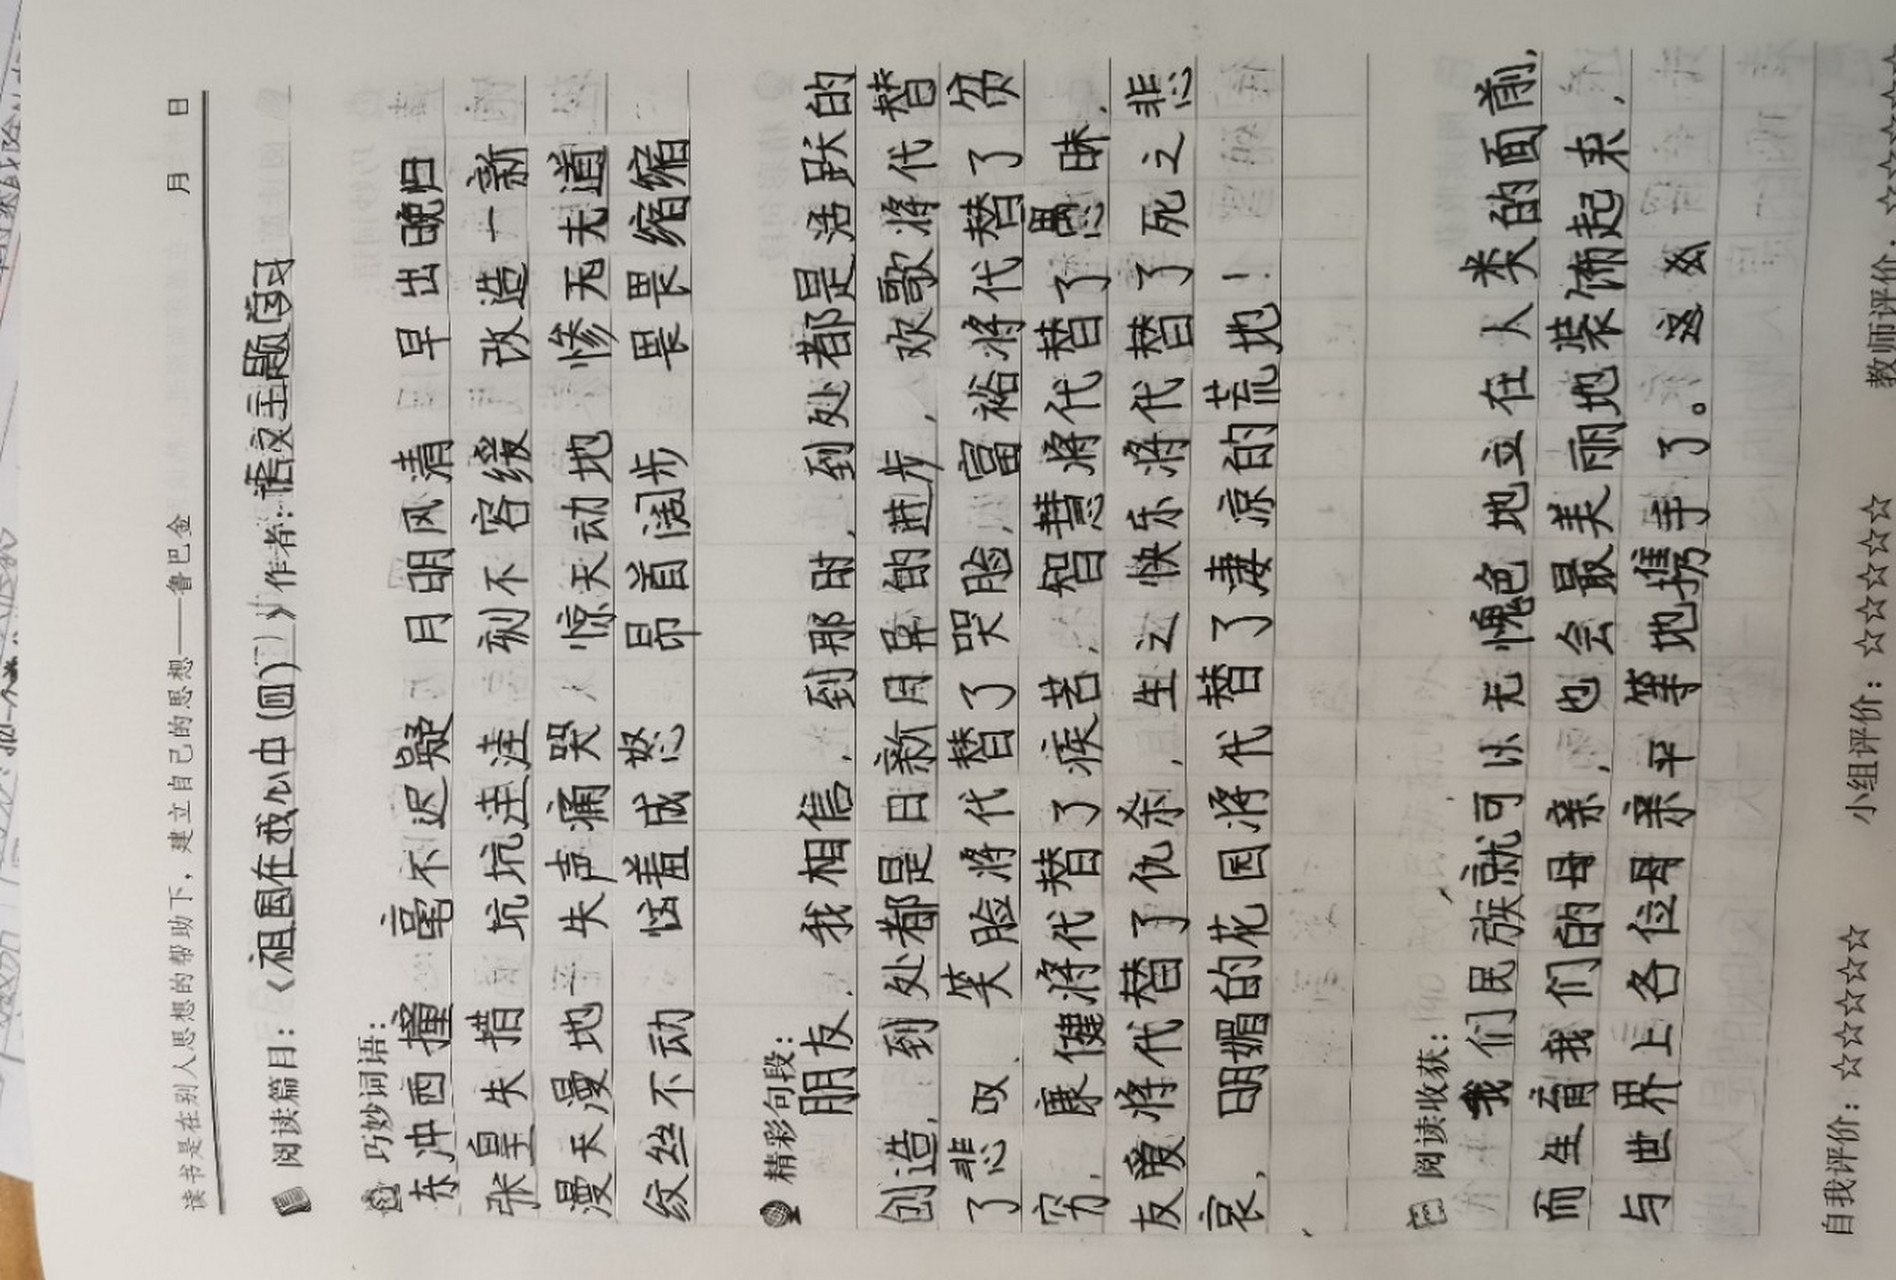 读书是在别人思想的帮助下，建立自己的思想——鲁巴金 月 日
阅读篇目：《祖国在我心中(四)》作者：语文主题学习
巧妙词语：
东冲西撞 毫不迟疑 月明风清 早出晚归
张皇失措 坑坑洼洼 刻不容缓 改造一新
漫天漫地 失声痛哭 惊天动地 惨无天道
纹丝不动 恼羞成怒 昂首阔步 畏畏缩缩
精彩句段：
朋友，我相信，到那时，到处都是活跃的
创造，到处都是日新月异的进步，欢歌将代替
了悲叹，笑脸将代替了哭脸，富裕将代替了贫
穷，康健将代替了疾苦，智慧将代替了愚昧，
友爱将代替了仇杀，生之快乐将代替了死之悲
哀，明媚的花园将代替了凄凉的荒地！
阅读收获：
我们民族就可以无愧色地立在人类的面前，
而生育我们的母亲，也会最美丽地装饰起来，
与世界上各位母亲平等地携手了。这么
自我评价：☆☆☆☆☆ 小组评价：☆☆☆☆☆ 教师评价：☆☆☆☆☆